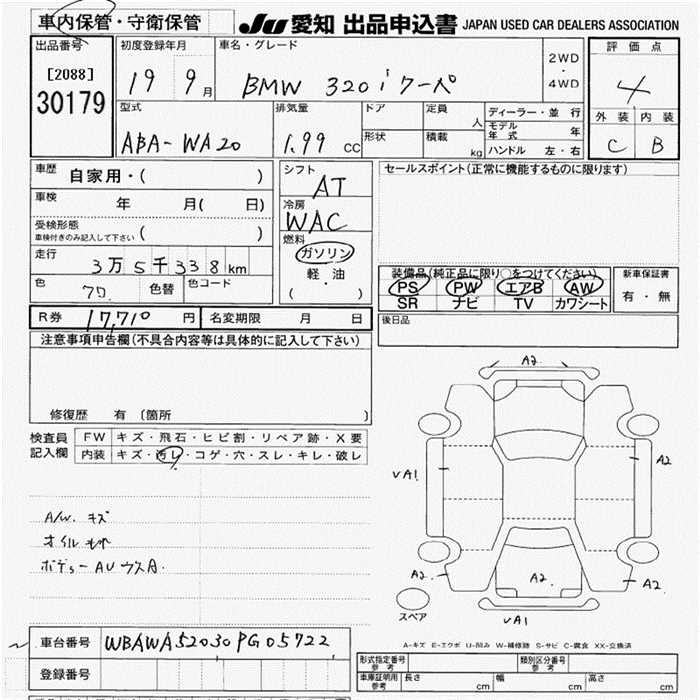 車内保管・守衛保管
JU 愛知 出品申込書 JAPAN USED CAR DEALERS ASSOCIATION
出品番号
[2088]
30179
初度登録年月
19 9月
車名・グレード
BMW 320i クーペ
2WD
・
4WD
評価点
4
外装 内装
C B
型式
ABA-WA20
排気量
1.99 CC
ドア
形状
定員
人
積載
kg
ディーラー・並行
モデル年式 年
ハンドル 左・右
車歴
自家用・( )
車検
年 月( 日)
受検形態
車検付きのみ記入して下さい ( )
走行
3万5千338km
色
色替
色コード
シフト
AT
冷房
WAC
燃料
ガソリン
軽・油
( )
セールスポイント(正常に機能するものに限ります)
装備品(純正品に限り○をつけてください)
PS PW エアB AW
SR ナビ TV カワシート
新車保証書
有・無
R券 17,710 円
名変期限 月 日
後日品
注意事項申告欄(不具合内容等は具体的に記入して下さい)
修復歴 有 〔箇所 〕
検査員
記入欄
FW キズ・飛石・ヒビ割・リペア跡・X要
内装 キズ・汚レ・コゲ・穴・スレ・キレ・破レ
A/W. キズ
オイルもれ
ボデー AU ウスA.
A2
VA1
A2
VA1
A2.
A2.
A2
スペア
VA1
A-キズ E-エクボ U-凹み W-補修跡 S-サビ C-腐食 XX-交換済
車台番号 WBAWA52030PG05722
登録番号
形式指定番号
参考
類別区分番号
参考
車庫証明用
参考
長さ cm
幅 cm
高さ cm